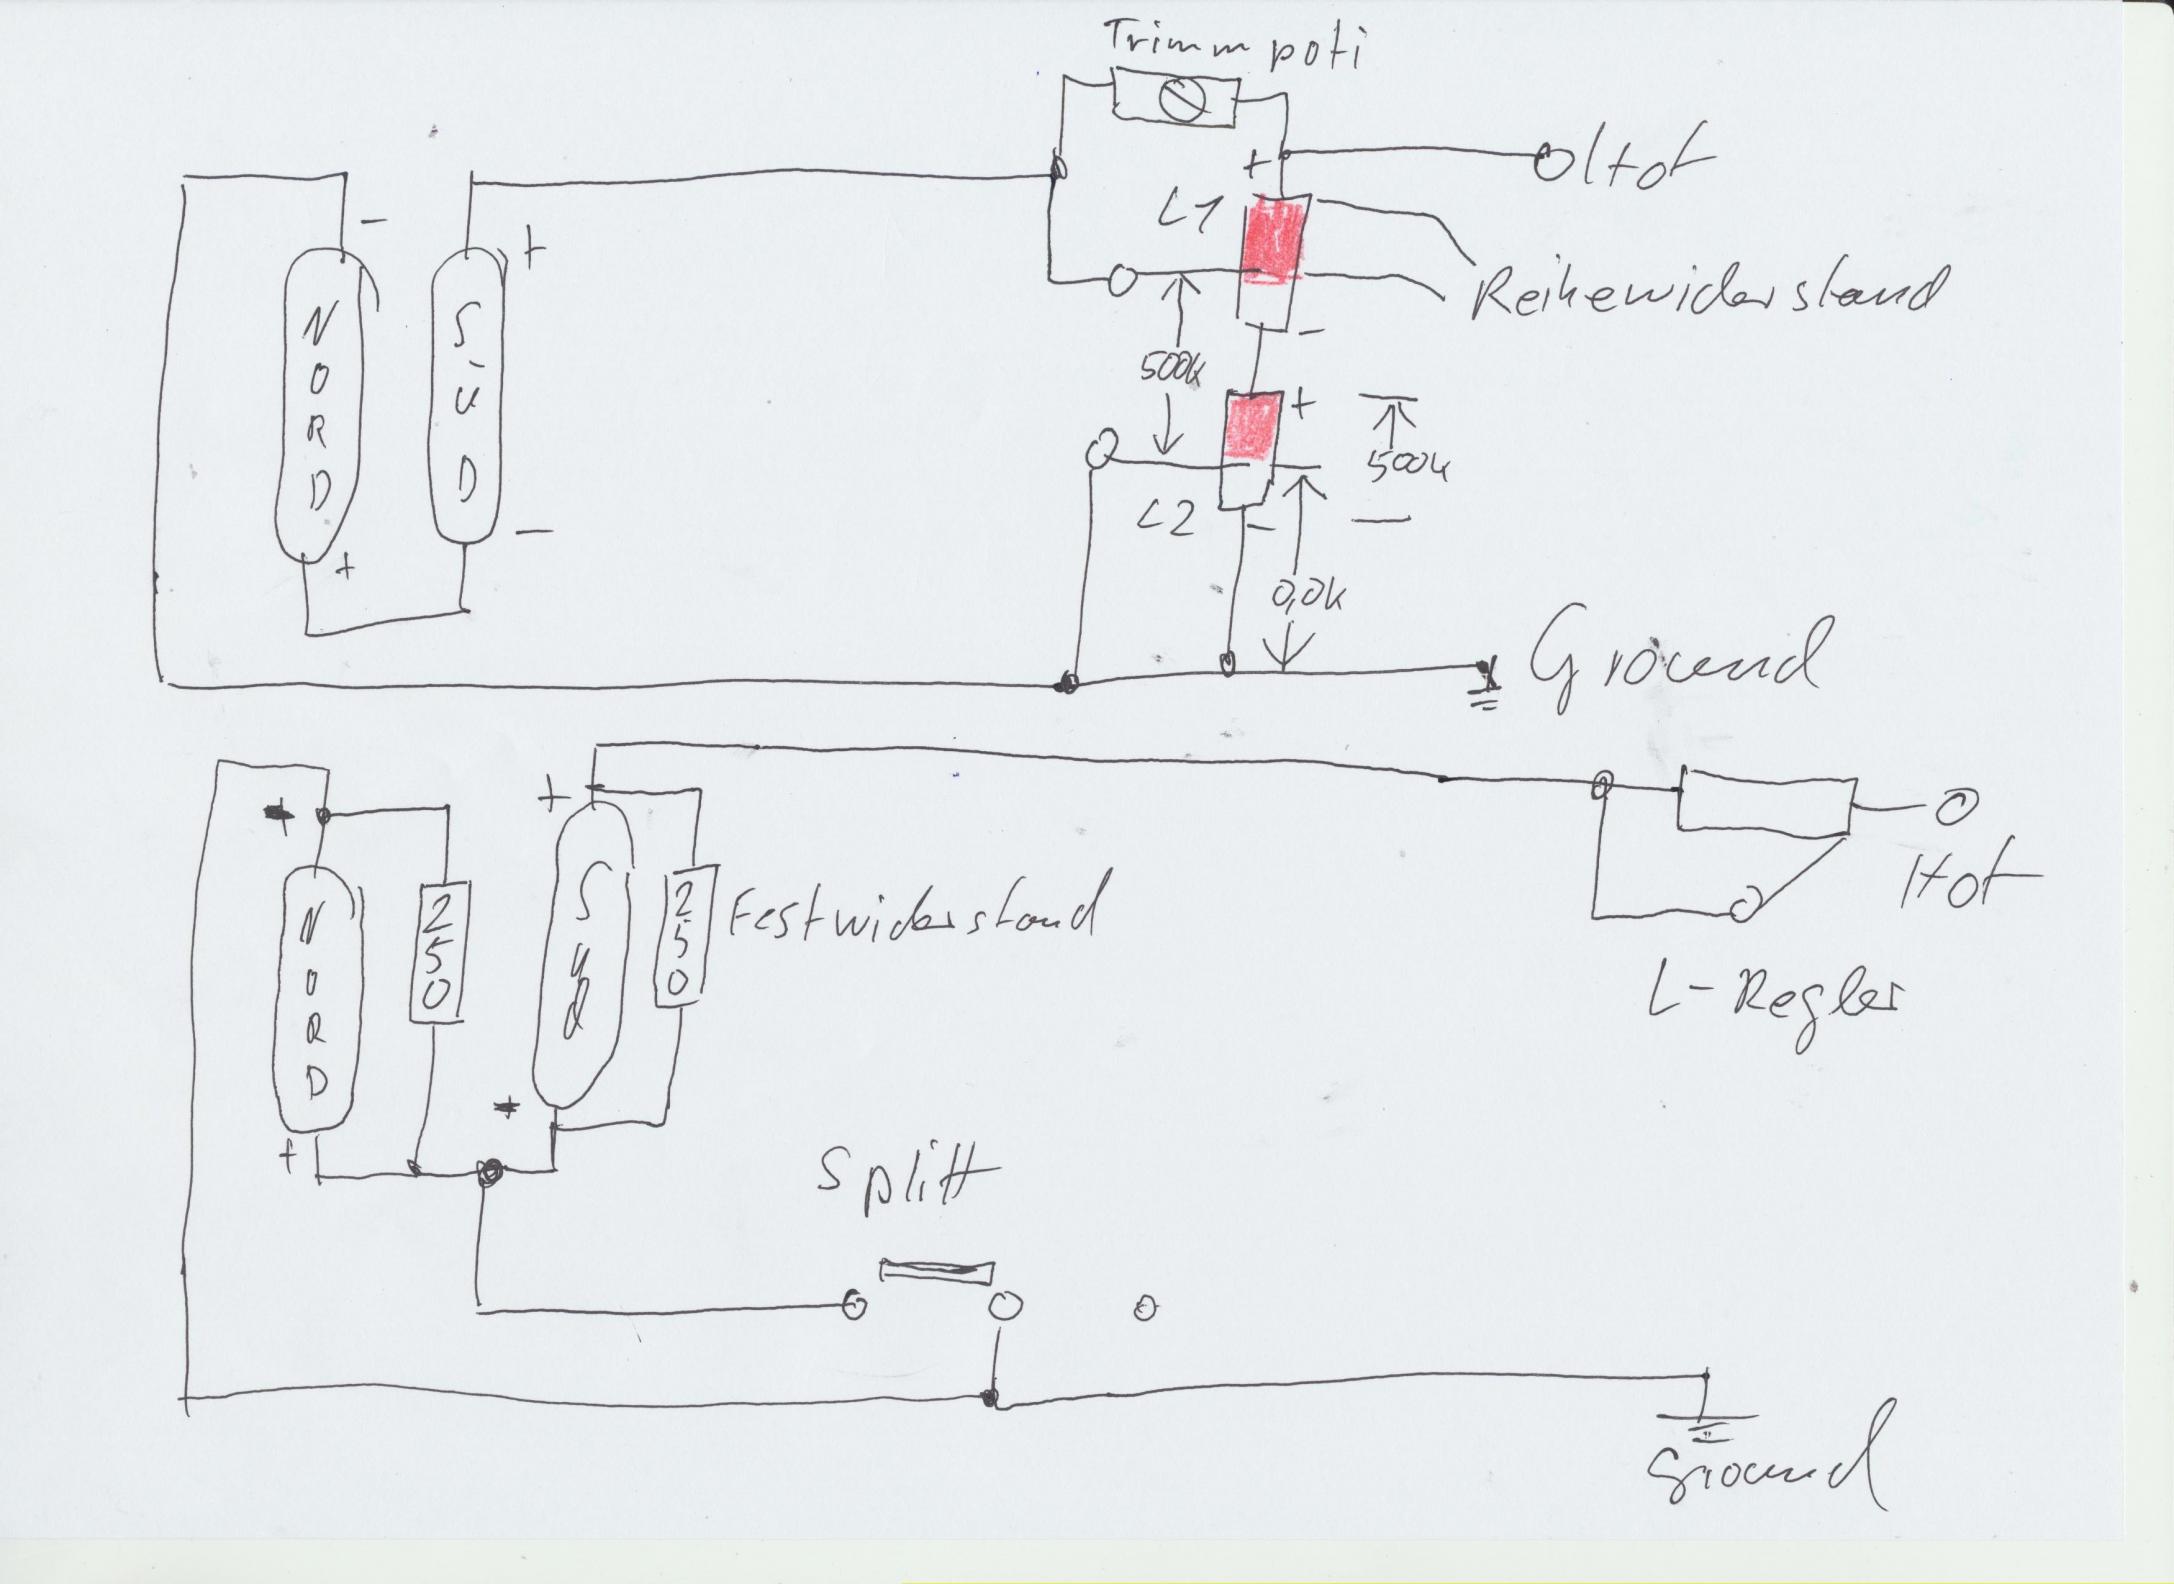 Trimmpoti
+
Hot
L1
-
+
NORD
SÜD
Reihewiderstand
-
500k
+
500k
L2
-
+
-
0,0k
Ground
+
NORD
250
SüD
250
Festwiderstand
Hot
L-Regler
+
Splitt
Ground